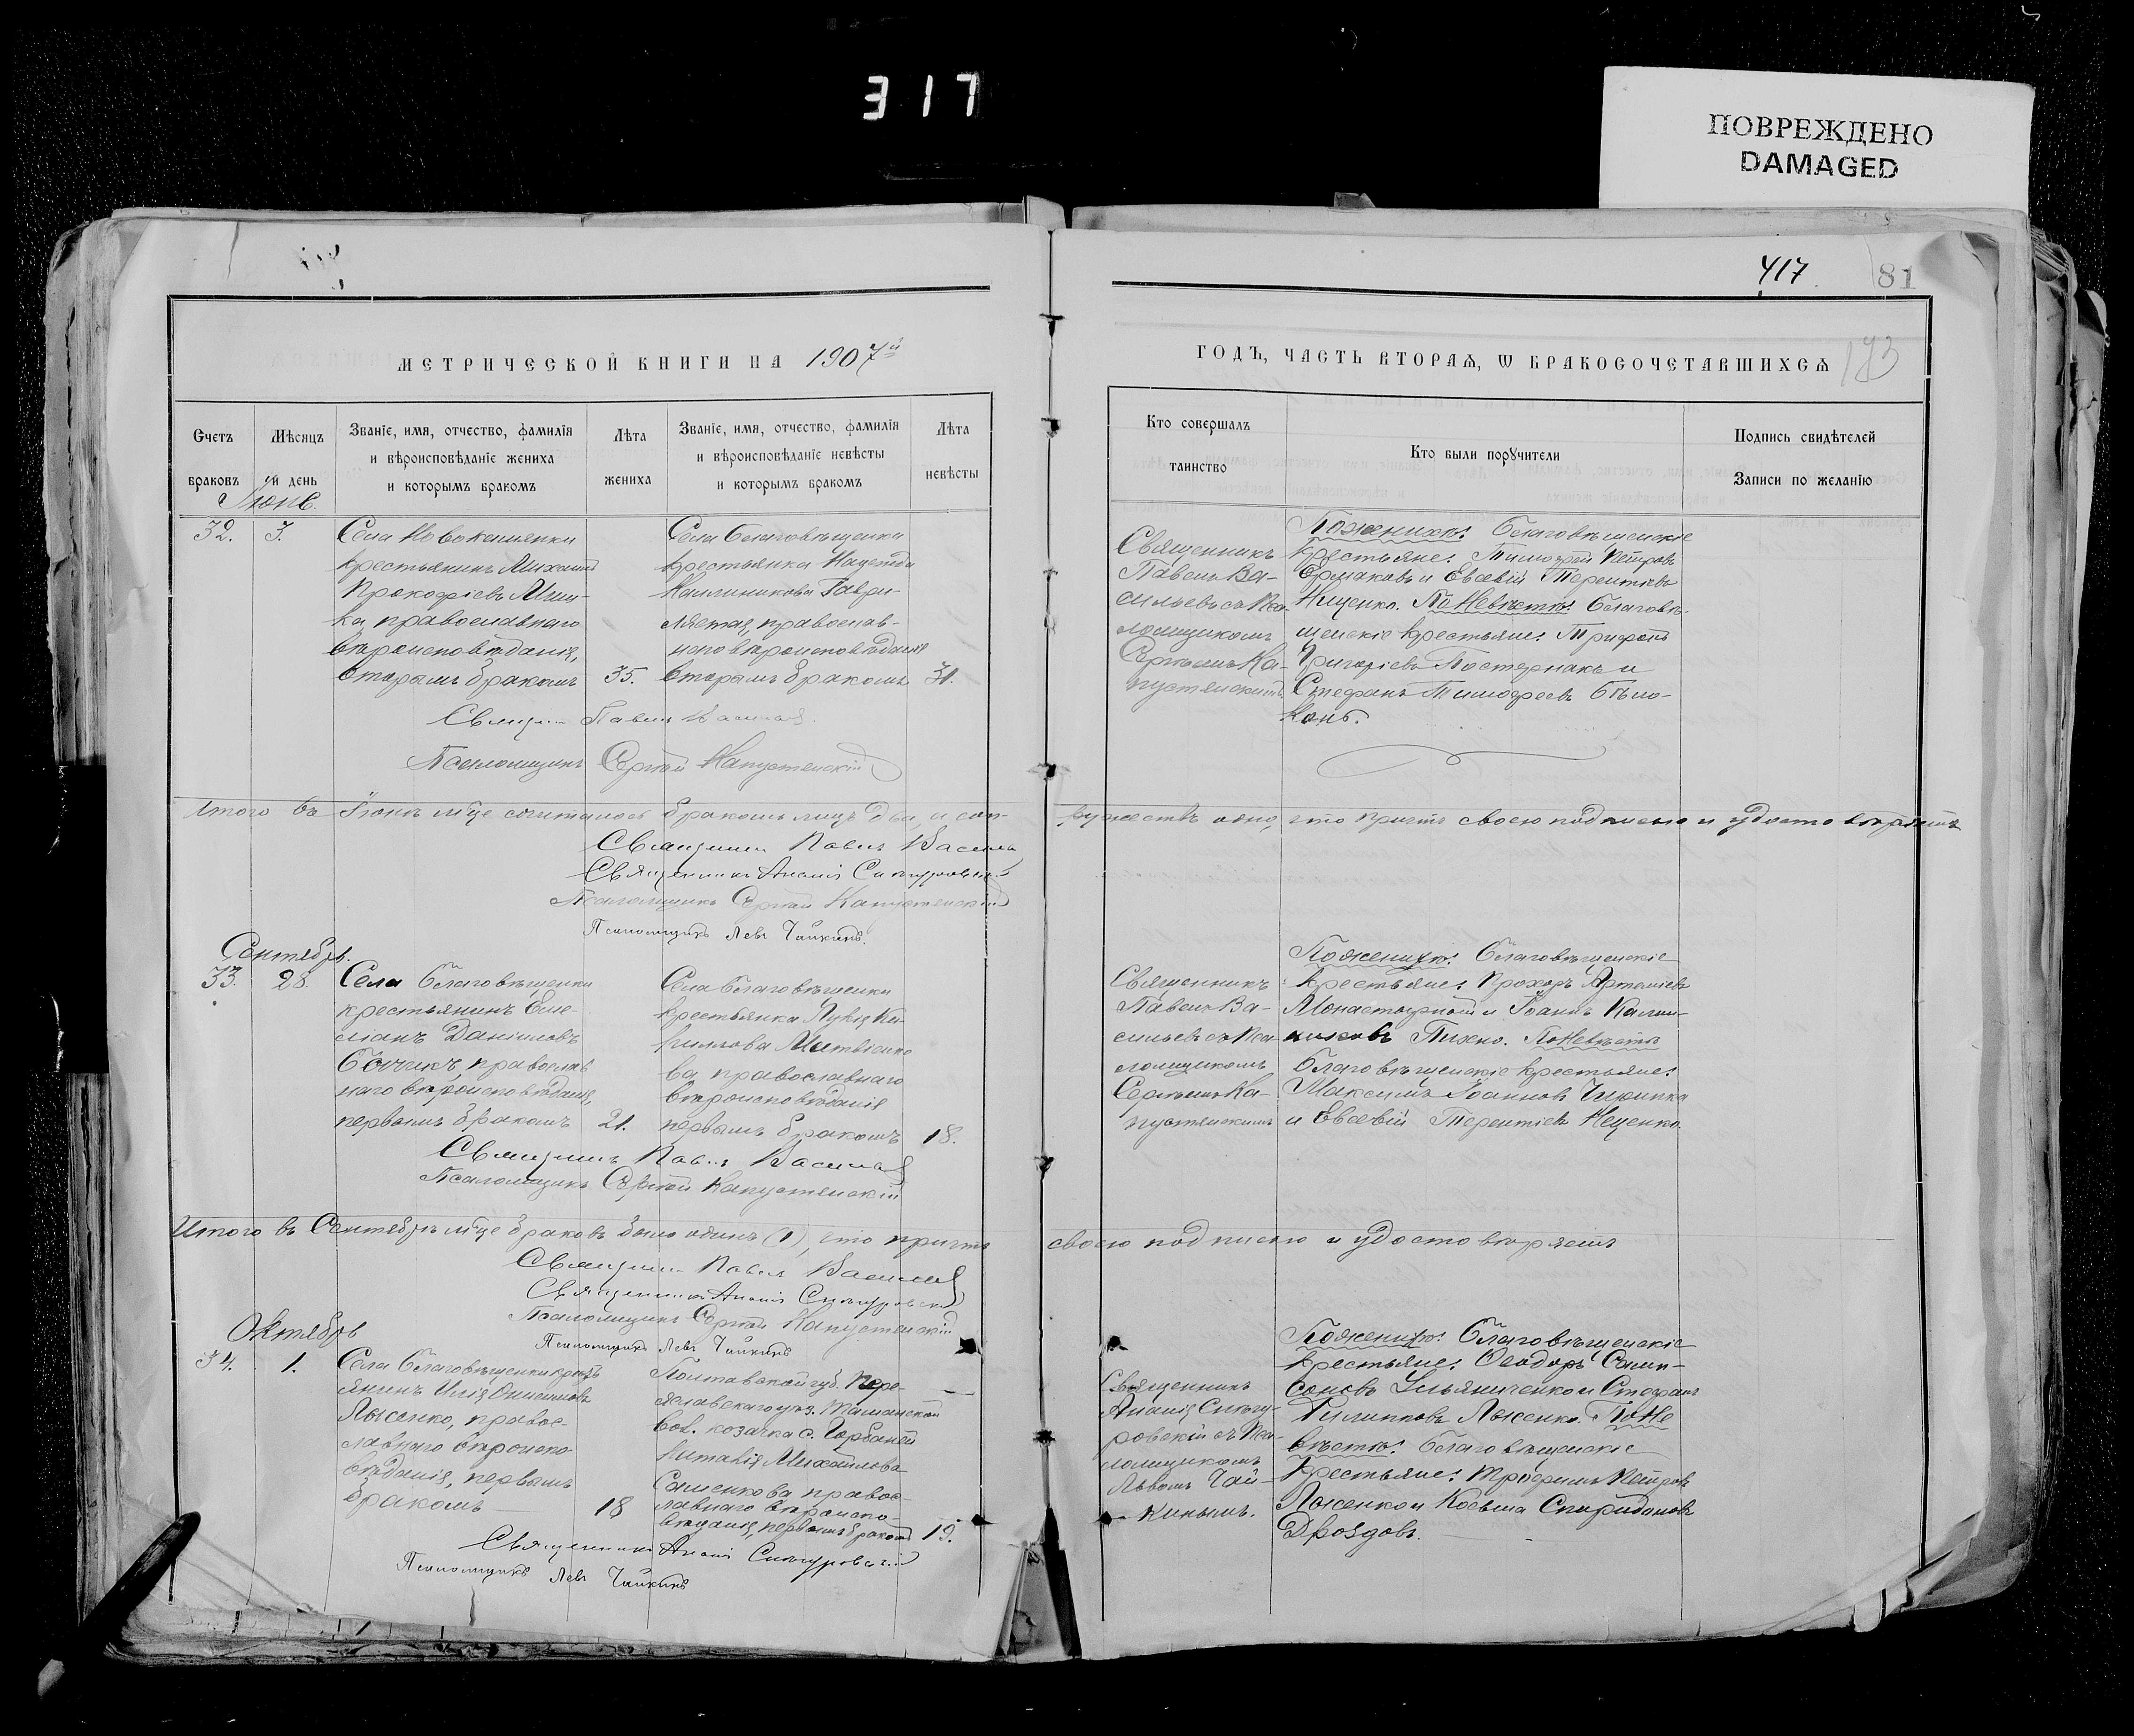 317
ПОВРЕЖДЕНО
DAMAGED
417
81
173
МЕТРИЧЕСКОЙ КНИГИ НА 1907й
ГОДЪ, ЧАСТЬ ВТОРАЯ, Ѡ БРАКОСОЧЕТАВШИХСЯ
Счетъ браковъ
Мѣсяцъ и день
Званіе, имя, отчество, фамилія и вѣроисповѣданіе жениха и которымъ бракомъ
Лѣта жениха
Званіе, имя, отчество, фамилія и вѣроисповѣданіе невѣсты и которымъ бракомъ
Лѣта невѣсты
Кто совершалъ таинство
Кто были поручители
Подпись свидѣтелей Записи по желанію
32.
3.
Села Новокаменки
крестьянинъ Михаилъ
Прокофіевъ
ка, православнаго
вѣроисповѣданія,
вторымъ бракомъ
35.
Села Благовѣщенки
крестьянка Надежда
Калиникова Гаври-
православ-
наго вѣроисповѣданія
вторымъ бракомъ
31.
Священникъ
Павелъ Ва-
сильевъ съ Пса-
ломщикомъ
Сергѣемъ Ка-
пустянскимъ
По женихѣ: Благовѣщенскіе
крестьяне: Тимофей Петровъ
Ермаковъ и Евсевій Терентіевъ
Нищенко. По Невѣстѣ: Благовѣ-
щенскіе крестьяне: Трифонъ
Григоріевъ Постернакъ и
Стефанъ Тимофеевъ Бѣло-
конь.
Павелъ Васильевъ
Псаломщикъ Сергѣй Капустянскій
Итого въ Іюнѣ мѣсяцѣ сочеталось бракомъ лицъ два, а суп-
ружествъ одно, что причтъ своею подписью и удостовѣряетъ
Священникъ Павелъ Васильевъ
Священникъ Ананій
Псаломщикъ Сергѣй Капустянскій
Псаломщикъ Левъ Чайкинъ.
Сентябрь.
33.
28.
Села Благовѣщенки
крестьянинъ Еме-
ліанъ Даніиловъ
православ
наго вѣроисповѣданія,
первымъ бракомъ
21.
Села Благовѣщенки
крестьянка Лукія Ки-
риллова Матвіенко
ва, православнаго
вѣроисповѣданія
первымъ бракомъ
18.
Священникъ
Павелъ Ва-
сильевъ съ Пса-
ломщикомъ
Сергѣемъ Ка-
пустянскимъ
По женихѣ: Благовѣщенскіе
крестьяне: Прохоръ Артеміевъ
Монастырной и Іоаннъ Калин-
никовъ Пихно. По Невѣстѣ
Благовѣщенскіе крестьяне:
Максимъ Іоанновъ
и Евсевій Терентіевъ Нещенко.
Священникъ Павелъ Васильевъ
Псаломщикъ Сергѣй Капустянскій
Итого въ Сентябрѣ мѣсяцѣ браковъ было одинъ (1), что причтъ
своею подписью и удостовѣряетъ
Священникъ Павелъ Васильевъ
Священникъ Ананій
Псаломщикъ Сергѣй Капустянскій
Псаломщикъ Левъ Чайкинъ
Октябрь
34.
1.
Села Благовѣщенки кресть
янинъ Илія
Лысенко, правос-
лавнаго вѣроиспо-
вѣданія, первымъ
бракомъ
18
Полтавской губ. Пере-
яславскаго уѣз. Ташанской
вол. козачка с. Горбаней
Наталія Михайлова
Сашенкова правос-
лавнаго вѣроиспо-
вѣданія, первымъ бракомъ
19.
Священникъ
Ананій
ровскій съ Пса-
ломщикомъ
Львомъ Чай-
кинымъ.
По женихѣ: Благовѣщенскіе
крестьяне: Ѳеодоръ Самп-
соновъ Ульяниченко и Стефанъ
Филипповъ Лысенко. По Не
вѣстѣ: Благовѣщенскіе
крестьяне: Трофимъ Петровъ
Лысенко и Косьма Спиридоновъ
Дроздовъ.
Священникъ Ананій
Псаломщикъ Левъ Чайкинъ